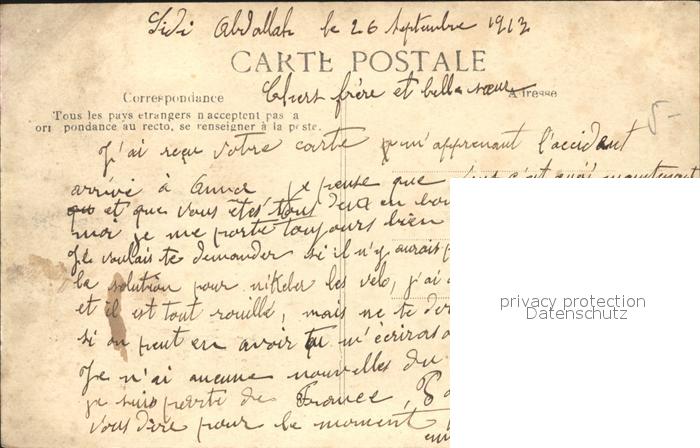 Sidi Abdallah le 26 Septembre 1913
CARTE POSTALE
Correspondance
Adresse
Tous les pays étrangers n'acceptent pas a
orr pondance au recto, se renseigner à la poste.
Chers frère et belle sœur
J'ai reçu votre carte m'apprenant l'accident
arrivé à je pense que c'est maintenant
et que vous êtes tous deux en bon
moi je me porte toujours bien
Je voulais te demander si il n'y aurais p
la solution pour nikeler les velo, j'ai
et il est tout rouillé, mais ne te der
si on peut en avoir tu m'écriras
Je n'ai aucune nouvelles du
je suis parti de France,
vous dire pour le moment
5-
privacy protection
Datenschutz